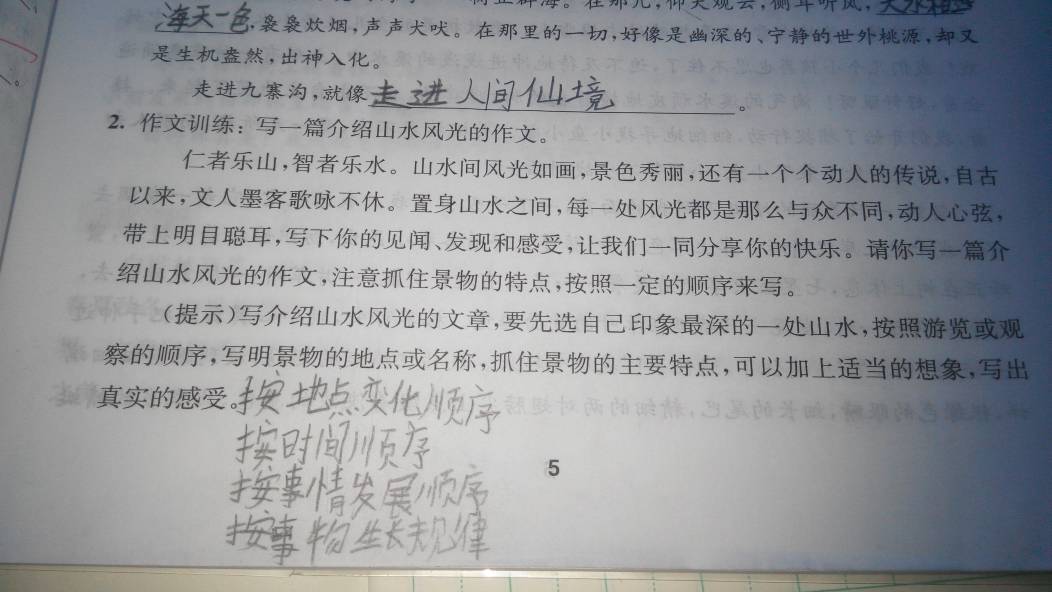 在那儿,仰天观云,侧耳听风,
海天一色,袅袅炊烟,声声犬吠。在那里的一切,好像是幽深的、宁静的世外桃源,却又
是生机盎然,出神入化。
走进九寨沟,就像走进人间仙境。
2. 作文训练:写一篇介绍山水风光的作文。
仁者乐山,智者乐水。山水间风光如画,景色秀丽,还有一个个动人的传说,自古
以来,文人墨客歌咏不休。置身山水之间,每一处风光都是那么与众不同,动人心弦,
带上明目聪耳,写下你的见闻、发现和感受,让我们一同分享你的快乐。请你写一篇介
绍山水风光的作文,注意抓住景物的特点,按照一定的顺序来写。
(提示)写介绍山水风光的文章,要先选自己印象最深的一处山水,按照游览或观
察的顺序,写明景物的地点或名称,抓住景物的主要特点,可以加上适当的想象,写出
真实的感受。按地点变化顺序
按时间顺序
按事情发展顺序
按事物生长规律
5